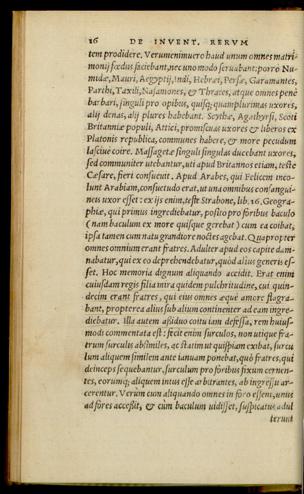 16 DE INVENT. RERVM
tem prodidere. Verumenimuero haud unum omnes matri-
monij fœdus faciebant, nec uno modo seruabant: porrò Nu-
midæ, Mauri, Aegyptij, Indi, Hebræi, Persæ, Garamantes,
Parthi, Taxili, Nasamones, & Thraces, atque omnes penè
barbari, singuli pro opibus, quisq; quamplurimas uxores,
alij denas, alij plures habebant. Scythæ, Agathyrsi, Scoti
Britanniæ populi, Attici, promiscuas uxores & liberos ex
Platonis republica, communes habere, & more pecudum
lasciue coire. Massagetæ singuli singulas ducebant uxores,
sed communiter utebantur, uti apud Britannos etiam, teste
Cæsare, fieri consueuit. Apud Arabes, qui Felicem inco-
lunt Arabiam, consuetudo erat, ut una omnibus consangui-
neis uxor esset: ex ijs enim, teste Strabone, lib. 16. Geogra-
phiæ, qui primus ingrediebatur, posito pro foribus baculo
(nam baculum ex more quisque gerebat) cum ea coibat,
ipsa tamen cum natu grandiore noctes agebat. Quapropter
omnes omnium erant fratres. Adulter apud eos capite dam-
nabatur, qui ex eo deprehendebatur, quòd alius generis es-
set. Hoc memoria dignum aliquando accidit. Erat enim
cuiusdam regis filia mira quidem pulchritudine, cui quin-
decim erant fratres, qui eius omnes æquè amore flagra-
bant, propterea alius sub alium continenter ad eam ingre-
diebatur. Illa autem aßiduo coitu iam defessa, rem huius-
modi commentata est: fecit enim surculos, non utique fra-
trum surculis absimiles, ac statim ut quispiam exibat, surcu
lum aliquem similem ante ianuam ponebat, quò fratres, qui
deinceps sequebantur, surculum pro foribus fixum cernen-
tes, eorumq; aliquem intus esse arbitrantes, ab ingressu ar-
cerentur. Verùm cum aliquando omnes in foro essent, unus
ad fores acceßit, & cùm baculum uidisset, suspicatus adul
terunt